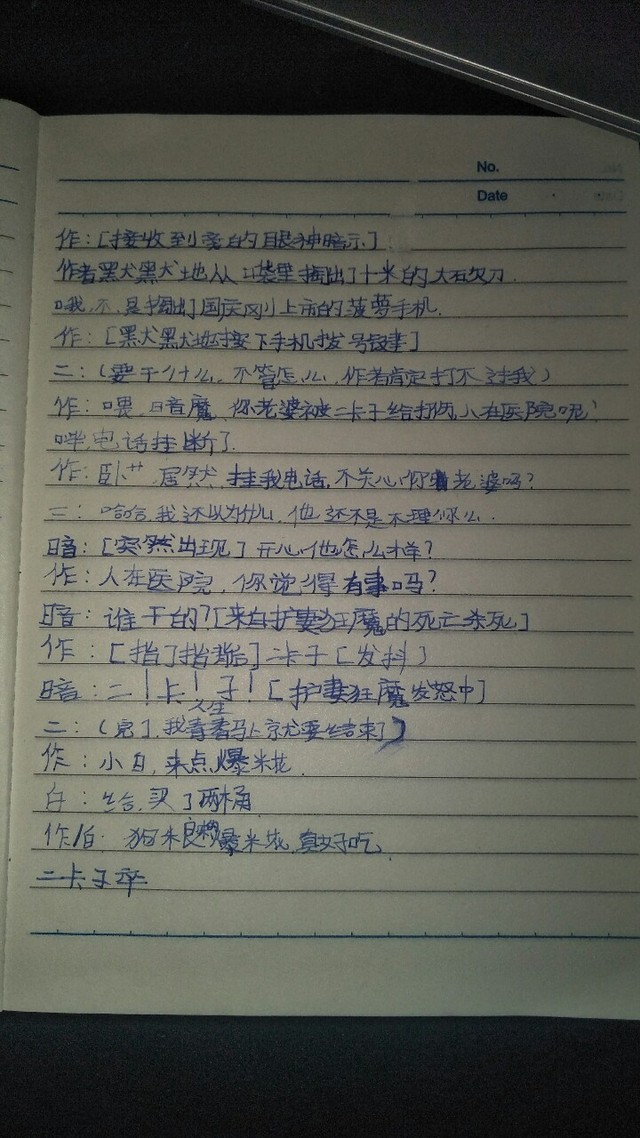 No.
Date
作：[接收到小白的眼神暗示]
作者默默地从口袋里掏出了十米的大砍刀.
哦，不，是掏出了国庆刚上市的菠萝手机.
作：[默默地按下手机拨号键]
二：(要干什么，不管怎么，作者肯定打不过我)
作：喂，暗魔，你老婆被二卡子给打伤，人在医院呢，
哔，电话挂断了.
作：卧艹，居然挂我电话，不关心你老婆吗？
二：哈哈，我还以为什么，他还不是不理你么.
暗：[突然出现]开心他怎么样？
作：人在医院，你觉得有事吗？
暗：谁干的？[来自护妻狂魔的死亡杀死]
作：[指了指背后]二卡子[发抖]
暗：二！卡！子！[护妻狂魔发怒中]
二：(完了，我人生马上就要结束了)
作：小白，来点爆米花.
白：给，买了两桶
作/白：狗粮爆米花，真好吃
二卡子卒